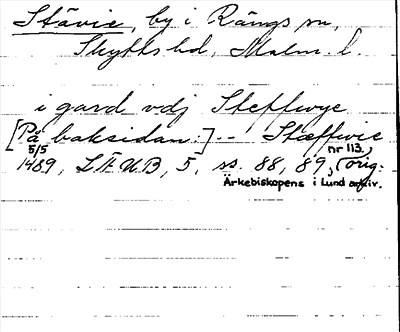 Stävie, by i Rängs sn,
Skytts hd, Malm. l.
i gard vdj Steffwye
[På baksidan:] -- Stæffwie
5/5 1489, LÄUB, 5, ss. 88, 89, nr 113, (orig.
Ärkebiskopens i Lund arkiv.